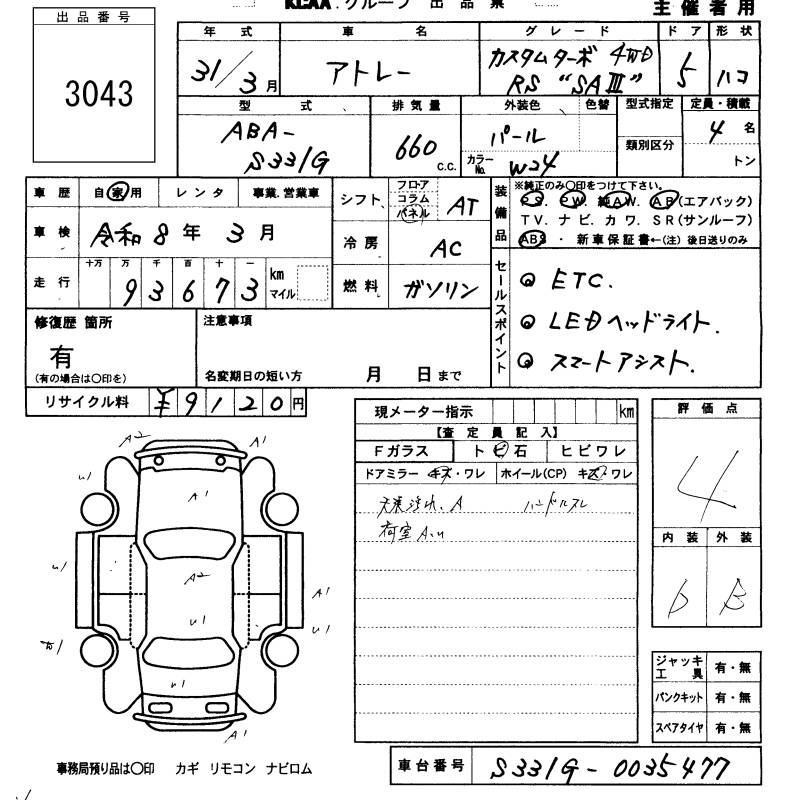 KCAA グループ 出品票
主催者用
出品番号
3043
年式 車名 グレード ドア 形状
31/3月 アトレー カスタムターボ 4WD RS "SAⅢ" 5 ハコ
型式 排気量 外装色 色替 型式指定 定員・積載
ABA-S331G 660 c.c. パール カラーNo. W24 類別区分 4名
トン
車歴 自家用 レンタ 事業.営業車
シフト フロア コラム パネル AT
装備品 ※純正のみ○印をつけて下さい。
PS. PW. 純AW. AB(エアバック)
TV. ナビ. カワ. SR(サンルーフ)
ABS ・ 新車保証書←(注) 後日送りのみ
車検 令和8年3月
冷房 AC
走行 十万 万 千 百 十 一
93673 km マイル
燃料 ガソリン
セールスポイント
◎ ETC.
◎ LEDヘッドライト.
◎ スマートアシスト.
修復歴 箇所
有
(有の場合は○印を)
注意事項
名変期日の短い方 月 日まで
リサイクル料 ¥9120円
現メーター指示 km
【査定員記入】
Fガラス トビ石 ヒビワレ
ドアミラー キズ・ワレ ホイール(CP) キズ・ワレ
天張汚れ、A ハンドルスレ
荷室A、U
評価点
4
内装 外装
D B
A2 A1
U1
A1
U1 A2 A1
U1 U1
U1
A1
ジャッキ工具 有・無
パンクキット 有・無
スペアタイヤ 有・無
事務局預り品は○印 カギ リモコン ナビロム
車台番号 S331G-0035477